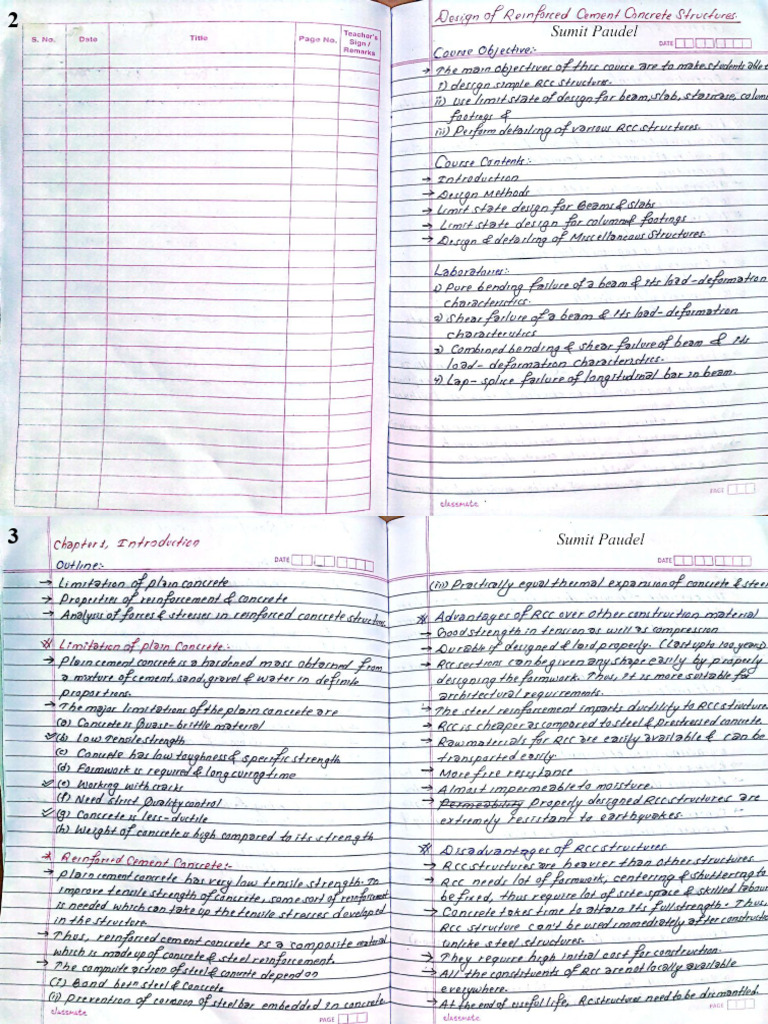 2
S. No.
Date
Title
Page No.
Teacher's
Sign /
Remarks
Design of Reinforced Cement Concrete Structures.
Sumit Paudel
DATE
Course Objective:-
→ The main objectives of this course are to make students able
i) design simple RCC Structures.
ii) Use limit state of design for beam, slab, staircase, colum
footings &
iii) Perform detailing of various RCC structures.
Course Contents:-
→ Introduction
→ Design Methods
→ Limit state design for Beams & slabs
→ Limit state design for column & footings
→ Design & detailing of Miscellaneous Structures.
Laboratories:-
1) Pure bending failure of a beam & its load-deformation
characteristics.
2) Shear failure of a beam & its load-deformation
characteristics
3) Combined bending & shear failure of beam & its
load-deformation characteristics.
4) Lap-splice failure of longitudinal bar in beam.
PAGE
classmate
3
Chapter 1, Introduction
DATE
Outline:-
→ Limitation of plain concrete
→ Properties of reinforcement & concrete
→ Analysis of forces & stresses in reinforced concrete structures.
※ Limitation of plain Concrete:-
→ Plain cement concrete is a hardened mass obtained from
a mixture of cement, sand, gravel & water in definite
proportions.
→ The major limitations of the plain concrete are
(a) Concrete is Quasi-brittle material
(b) Low Tensile strength
(c) Concrete has low toughness & specific strength
(d) Formwork is required & long curing time
(e) Working with cracks
(f) Need strict Quality control
(g) Concrete is less-ductile
(h) Weight of concrete is high compared to its strength
* Reinforced Cement Concrete:-
→ Plain cement concrete has very low tensile strength. To
improve tensile strength of concrete, some sort of reinforcement
is needed which can take up the tensile stresses developed
in the structure.
→ Thus, reinforced cement concrete is a composite material
which is made up of concrete & steel reinforcement.
→ The composite action of steel & concrete depend on
(i) Bond betn steel & Concrete
(ii) Prevention of corrosion of steel bar embedded in concrete
classmate
PAGE
Sumit Paudel
DATE
(iii) Practically equal thermal expansion of concrete & steel
※ Advantages of RCC over other construction material
→ Good strength in tension as well as compression
→ Durable if designed & laid properly. (Last upto 100 years)
→ RCC sections can be given any shape easily by properly
designing the formwork. Thus, it is more suitable for
architectural requirements.
→ The steel reinforcement imparts ductility to RCC structures
→ RCC is cheaper as compared to steel & prestressed concrete.
→ Raw materials for RCC are easily available & can be
transported easily
→ More fire resistance
→ Almost impermeable to moisture.
→ Permeability Properly designed RCC structures are
extremely resistant to earthquakes.
※ Disadvantages of RCC structures
→ RCC structures are heavier than other structures
→ RCC needs lot of formwork, centering & shuttering to
be fixed, thus require lot of site space & skilled labour
→ Concrete takes time to attain its full strength. Thus,
RCC structure can't be used immediately after construction
unlike steel structures.
→ They require high initial cost for construction.
→ All the constituents of RCC are not locally available
everywhere.
→ At the end of useful life, RC structures need to be dismantled.
PAGE
classmate